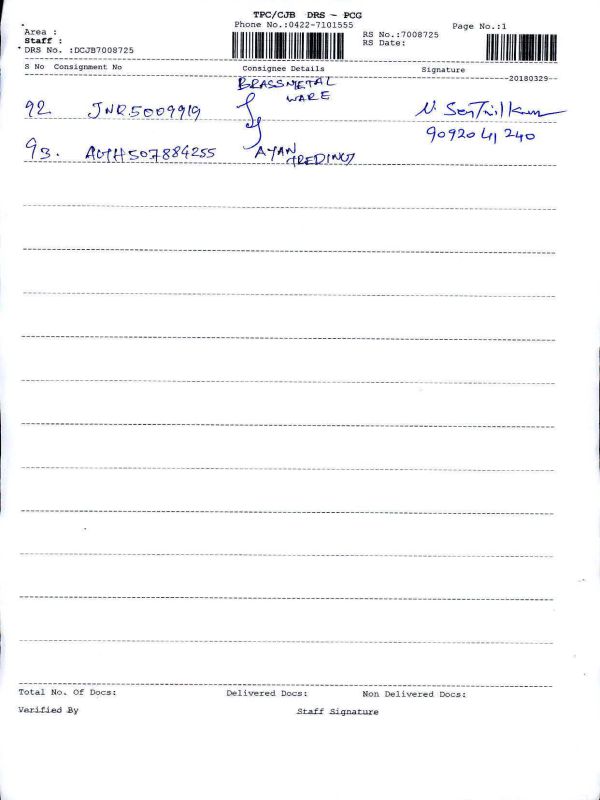 TPC/CJB DRS - PCG
Phone No.:0422-7101555
Page No.:1
Area :
Staff :
DRS No. :DCJB7008725
RS No.:7008725
RS Date:
S No Consignment No Consignee Details Signature
20180329
92 JNR5009919 BRASSMETAL
WARE
9092041240
93. AUH507884255 AYAN
TREDING
Total No. Of Docs: Delivered Docs: Non Delivered Docs:
Verified By Staff Signature